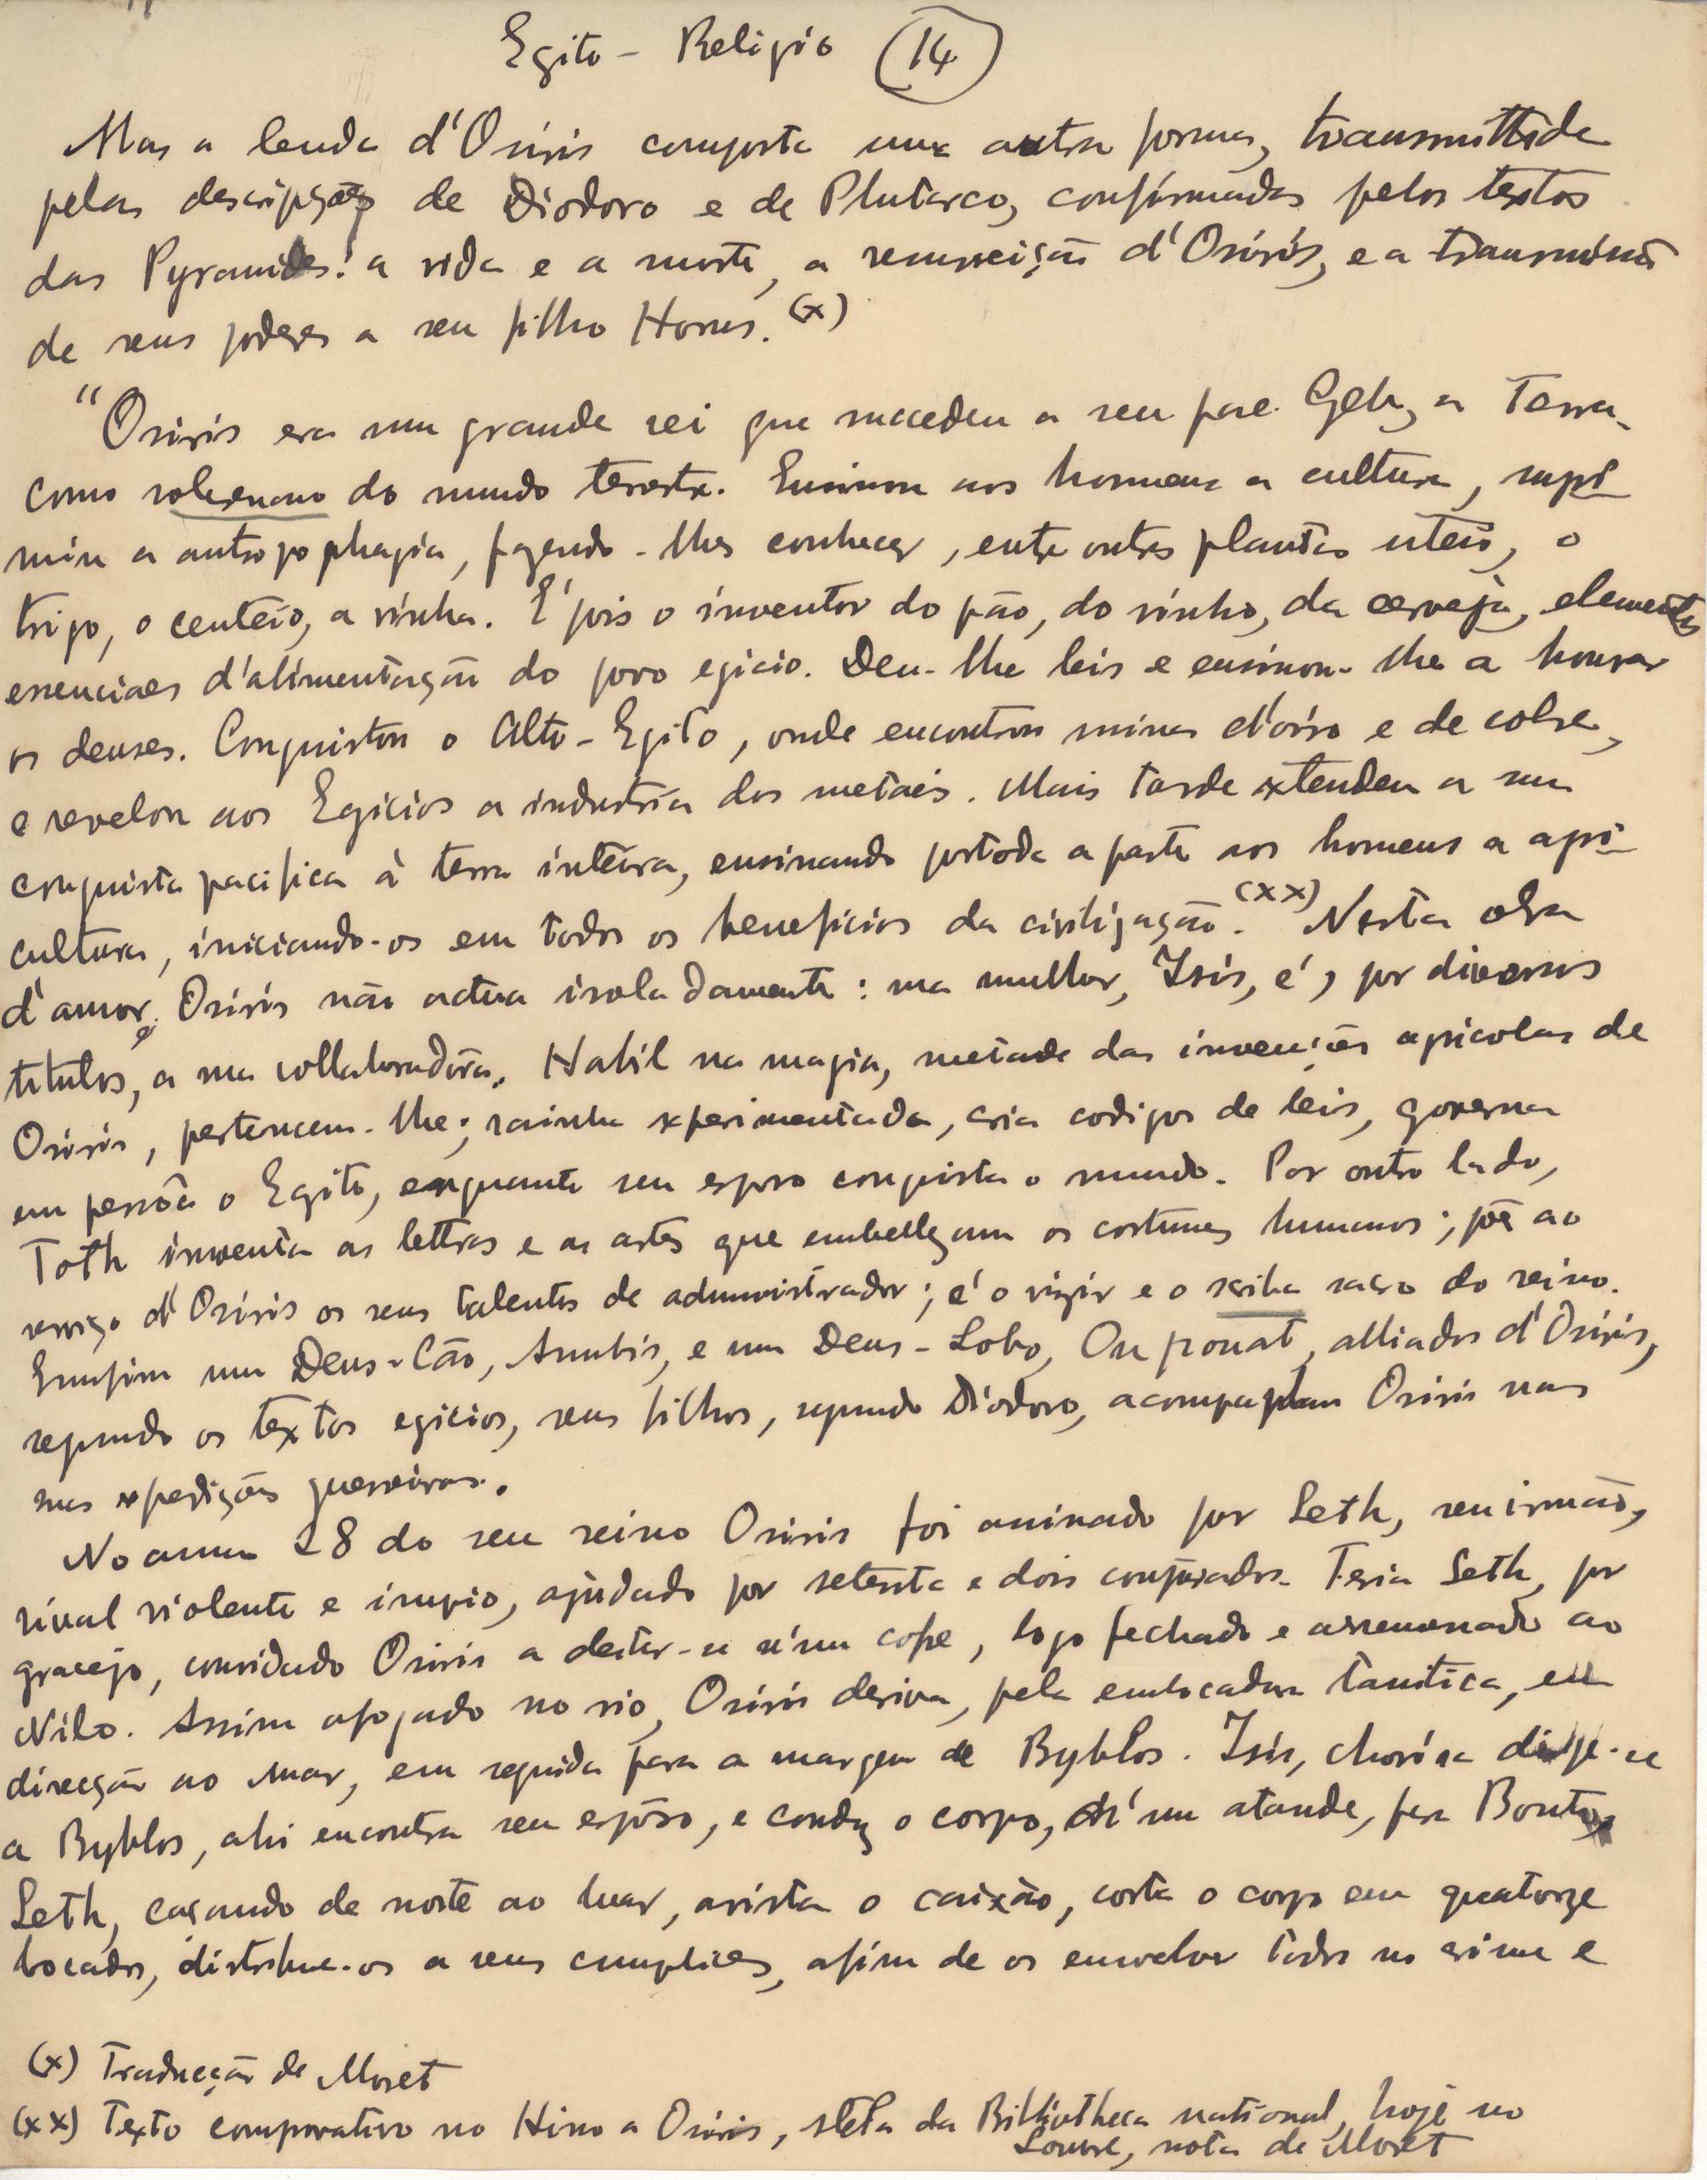 Egito - Religião (14)
Mas a lenda d'Osiris comporta uma outra forma, transmittida
pelas descripções de Diodoro e de Plutarco, confirmadas pelos textos
das Pyramides: a vida e a morte, a ressurreição d'Osiris, e a transmissão
de seus poderes a seu filho Horus. (x)
"Osiris era um grande rei que succedeu a seu pae Geb, a Terra,
como soberano do mundo terrestre. Ensinou aos homens a cultura, supri-
miu a antropophagia, fazendo-lhes conhecer, entre outras plantas uteis, o
trigo, o centeio, a vinha. É pois o inventor do pão, do vinho, da cerveja, elementos
essenciaes d'alimentação do povo egicio. Deu-lhe leis e ensinou-lhe a honrar
os deuses. Conquistou o Alto-Egito, onde encontrou minas d'oiro e de cobre,
e revelou aos Egicios a industria dos metaes. Mais tarde extendeu a sua
conquista pacifica à terra inteira, ensinando por toda a parte aos homens a agri-
cultura, iniciando-os em todos os beneficios da civilização. (xx) Nesta obra
d'amor, Osiris não actua isoladamente: sua mulher, Isis, é, por diversos
titulos, a sua collaboradora. Habil na magia, metade das invenções agricolas de
Osiris, pertencem-lhe; rainha experimentada, cria codigos de leis, governa
em pessôa o Egito, enquanto seu esposo conquista o mundo. Por outro lado,
Toth inventa as lettras e as artes que embellezam os costumes humanos; põe ao
serviço d'Osiris os seus talentos de administrador; é o vizir e o scriba sacro do reino.
Emfim um Deus-Cão, Anubis, e um Deus-Lobo, Oupouat, alliados d'Osiris,
segundo os textos egicios, seus filhos, segundo Diodoro, acompanham Osiris nas
suas expedições guerreiras.
No anno 28 do seu reino Osiris foi assinado por Seth, seu irmão,
rival violento e impio, ajudado por setenta e dois conjurados. Teria Seth, por
gracejo, convidado Osiris a deitar-se n'um cofre, logo fechado e arremessado ao
Nilo. Assim afogado no rio, Osiris deriva, pela embocadura tanitica, em
direcção ao mar, em seguida para a margem de Byblos. Isis, chorosa dirige-se
a Byblos, ahi encontra seu espôso, e conduz o corpo, n'um ataude, para Bouto.
Seth, caçando de noite ao luar, avista o caixão, corta o corpo em quatorze
bocados, distribue-os a seus cumplices, afim de os envolver todos no crime e
(x) Traducção de Moret
(xx) Texto comparativo no Hino a Osiris, stela da Bibliotheca national, hoje no
Louvre, nota de Moret